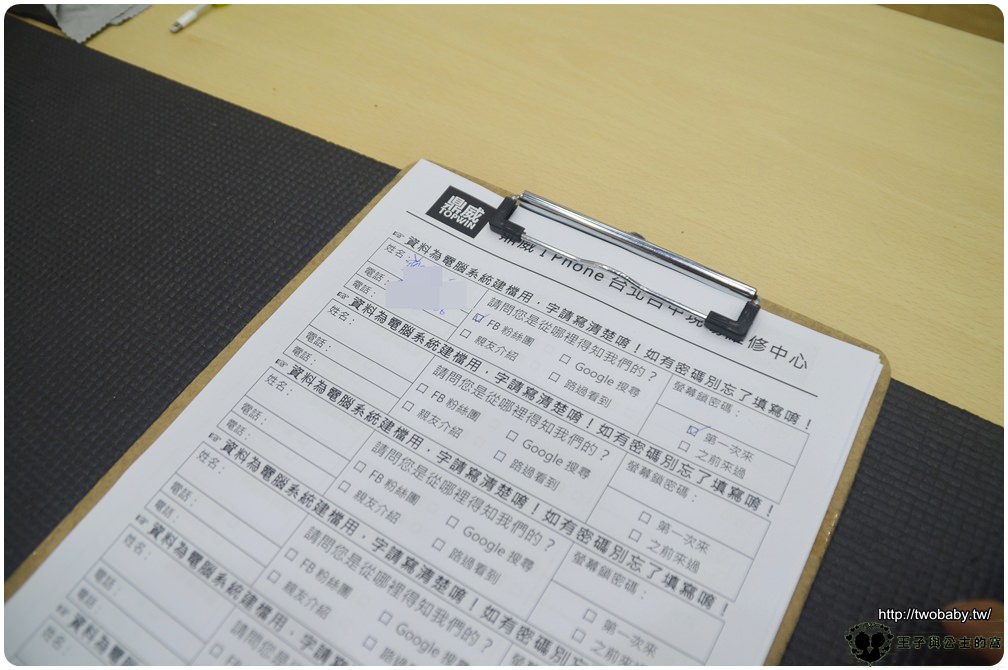 鼎威
TOPWIN
鼎威 iPhone 台北台中現場維修中心
☞ 資料為電腦系統建檔用．字請寫清楚唷！如有密碼別忘了填寫唷！
姓名：
電話：
電話：
請問您是從哪裡得知我們的？
☑ FB 粉絲團
□ Google 搜尋
□ 親友介紹
□ 路過看到
螢幕鎖密碼：
☑ 第一次來
□ 之前來過
☞ 資料為電腦系統建檔用．字請寫清楚唷！如有密碼別忘了填寫唷！
姓名：
電話：
電話：
請問您是從哪裡得知我們的？
□ FB 粉絲團
□ Google 搜尋
□ 親友介紹
□ 路過看到
螢幕鎖密碼：
□ 第一次來
□ 之前來過
☞ 資料為電腦系統建檔用．字請寫清楚唷！如有密碼別忘了填寫唷！
姓名：
電話：
電話：
請問您是從哪裡得知我們的？
□ FB 粉絲團
□ Google 搜尋
□ 親友介紹
□ 路過看到
螢幕鎖密碼：
□ 第一次來
□ 之前來過
☞ 資料為電腦系統建檔用．字請寫清楚唷！如有
姓名：
電話：
電話：
請問您是從哪裡得知我們的？
□ FB 粉絲團
□ Google 搜尋
□ 親友介紹
□ 路過看到
☞ 資料為電腦系統建檔用．字請
姓名：
電話：
電話：
請問您是
☞ 資料為電腦
姓名：
http://twobaby.tw/
王子與公主的窩